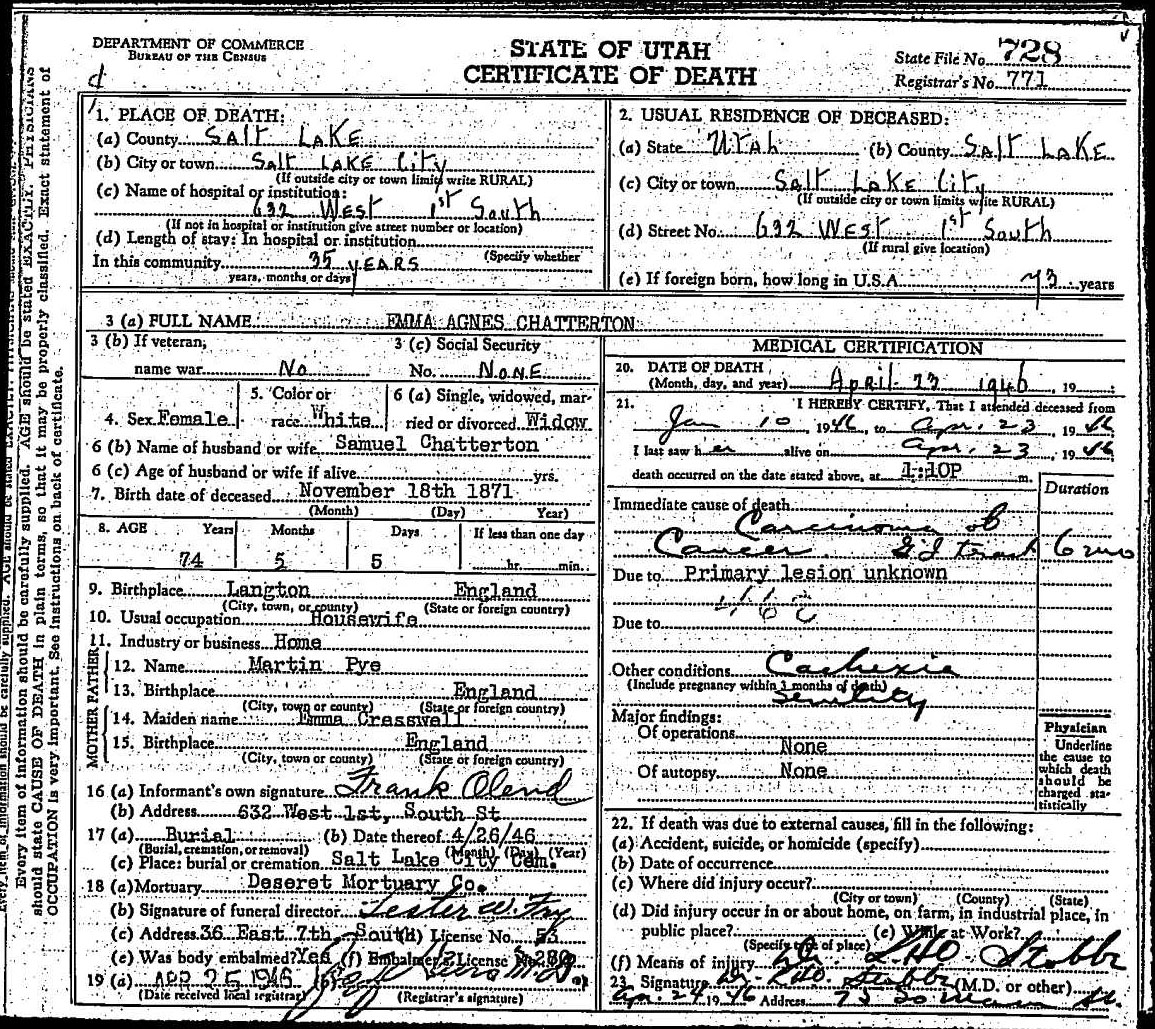 DEPARTMENT OF COMMERCE
BUREAU OF THE CENSUS
STATE OF UTAH
CERTIFICATE OF DEATH
State File No. 728
Registrar's No. 771
1. PLACE OF DEATH:
(a) County SALT LAKE
(b) City or town SALT LAKE City
(If outside city or town limits write RURAL)
(c) Name of hospital or institution:
632 WEST 1st South
(If not in hospital or institution give street number or location)
(d) Length of stay: In hospital or institution
(Specify whether
In this community 35 YEARS
years, months or days)
2. USUAL RESIDENCE OF DECEASED:
(a) State UTAH (b) County SALT LAKE
(c) City or town SALT LAKE City
(If outside city or town limits write RURAL)
(d) Street No. 632 WEST 1st South
(If rural give location)
(e) If foreign born, how long in U.S.A. 73 years
3 (a) FULL NAME EMMA AGNES CHATTERTON
3 (b) If veteran, 3 (c) Social Security
name war No No. NONE
5. Color or 6 (a) Single, widowed, mar-
4. Sex Female race White ried or divorced Widow
6 (b) Name of husband or wife Samuel Chatterton
6 (c) Age of husband or wife if alive yrs.
7. Birth date of deceased November 18th 1871
(Month) (Day) Year)
8. AGE Years Months Days If less than one day
74 5 5 hr. min.
9. Birthplace Langton England
(City, town, or county) (State or foreign country)
10. Usual occupation Housewife
11. Industry or business Home
FATHER
12. Name Martin Pye
13. Birthplace England
(City, town or county) (State or foreign country)
MOTHER
14. Maiden name Emma Cresswell
15. Birthplace England
(City, town or county) (State or foreign country)
16 (a) Informant's own signature Frank Olend
(b) Address 632 West 1st, South St
17 (a) Burial (b) Date thereof 4/26/46
(Burial, cremation, or removal) (Month) (Day) (Year)
(c) Place: burial or cremation Salt Lake City Cem.
18 (a) Mortuary Deseret Mortuary Co.
(b) Signature of funeral director Lester W. Fry
(c) Address 36 East 7th South (d) License No. 53
(e) Was body embalmed? Yes (f) Embalmer's License No. 280
19 (a) APR 25 1946 (b)
(Date received local registrar) (Registrar's signature)
MEDICAL CERTIFICATION
20. DATE OF DEATH
(Month, day, and year) April 23 1946, 19
21. I HEREBY CERTIFY, That I attended deceased from
Jan 10, 1946, to Apr. 23, 1946
I last saw her alive on Apr. 23, 1946
death occurred on the date stated above, at 1:10P m.
Duration
Immediate cause of death
Carcinoma of
Cancer G.I tract 6 mo
Due to Primary lesion unknown
Due to
Other conditions Cachexia
(Include pregnancy within 3 months of death)
Senility
Major findings:
Of operations
None
Of autopsy None
Physician
Underline
the cause to
which death
should be
charged sta-
tistically
22. If death was due to external causes, fill in the following:
(a) Accident, suicide, or homicide (specify)
(b) Date of occurrence
(c) Where did injury occur?
(City or town) (County) (State)
(d) Did injury occur in or about home, on farm, in industrial place, in
public place? (e) While at Work?
(Specify type of place)
(f) Means of injury
23. Signature (M.D. or other)
Apr. 24, 1946 Address 75 So Main St.
Every item of information should be carefully supplied. AGE should be stated EXACTLY. PHYSICIANS
should state CAUSE OF DEATH in plain terms, so that it may be properly classified. Exact statement of
OCCUPATION is very important. See instructions on back of certificate.